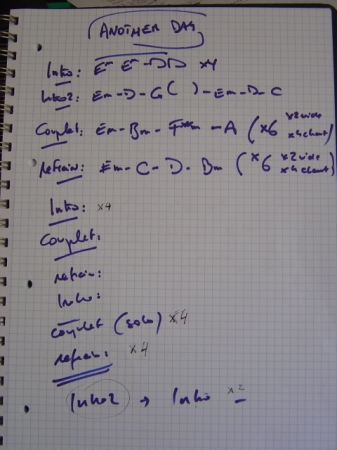 ANOTHER DAY
Intro: Em Em - D D x4
Intro2: Em - D - G ( ) - Em - D - C
Couplet: Em - Bm - - A (x6 x2 vide x4 chant)
Refrain: Em - C - D - Bm (x6 x2 vide x4 chant)
Intro: x4
Couplet:
refrain:
Intro:
couplet (solo) x4
refrain: x4
Intro2 → Intro x2